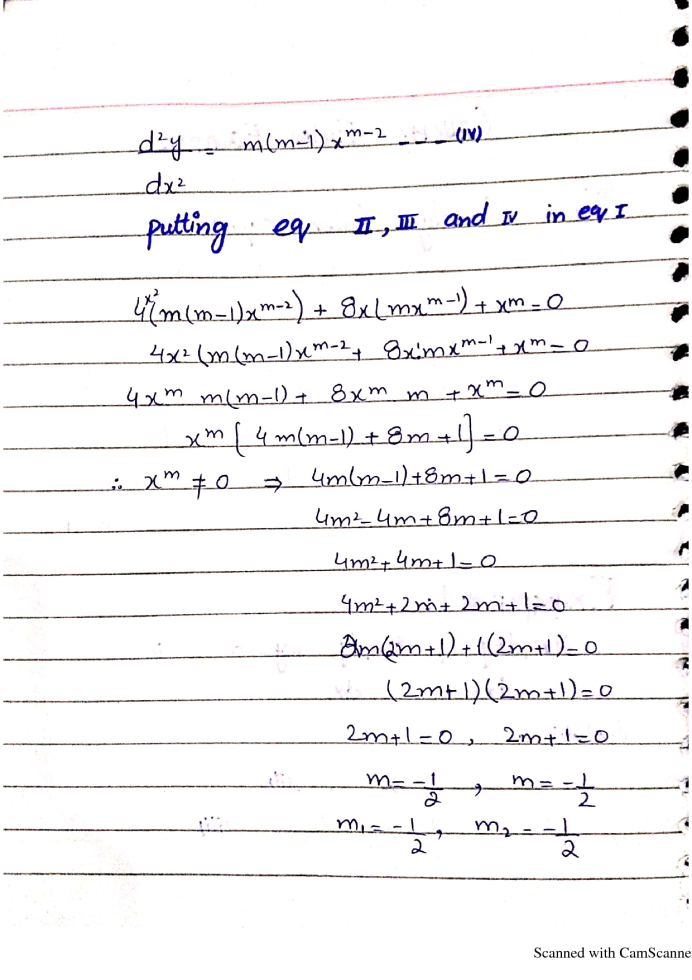 d²y = m(m-1) x^(m-2) --- (IV)
dx²
putting eq II, III and IV in eq I
4x²(m(m-1)x^(m-2)) + 8x(mx^(m-1)) + x^m = 0
4x² (m(m-1)x^(m-2) + 8x·mx^(m-1) + x^m = 0
4x^m m(m-1) + 8x^m m + x^m = 0
x^m [4m(m-1) + 8m + 1] = 0
∴ x^m ≠ 0 ⇒ 4m(m-1)+8m+1=0
4m²-4m+8m+1=0
4m²+4m+1=0
4m²+2m+2m+1=0
2m(2m+1)+1(2m+1)=0
(2m+1)(2m+1)=0
2m+1=0, 2m+1=0
m=-1/2, m=-1/2
m₁=-1/2, m₂=-1/2
Scanned with CamScanne